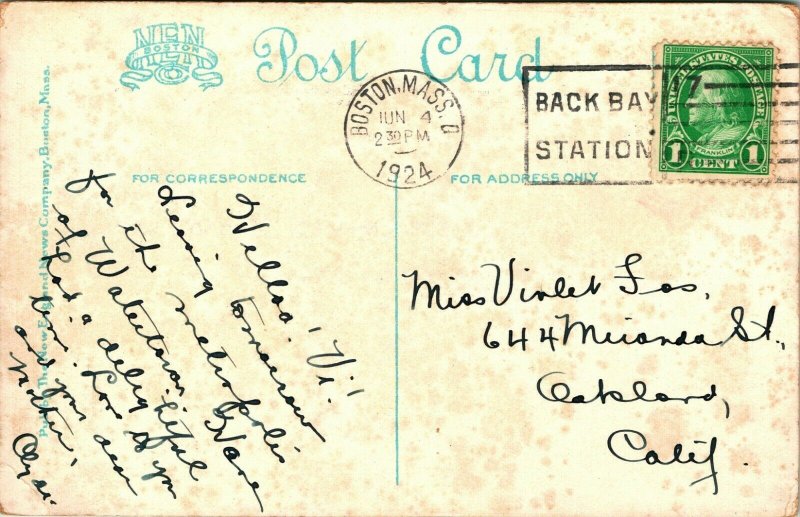 NEN
BOSTON
Post Card
BOSTON, MASS. D
JUN 4
2 30 PM
1924
BACK BAY
STATION
UNITED STATES POSTAGE
7
FRANKLIN
1 CENT 1
FOR CORRESPONDENCE
FOR ADDRESS ONLY
The New England News Company, Boston, Mass.
Helloa! Vi!
Leaving tomorrow
for the metropolis
of Watertown. Have
had a delightful
time. Love to you
and your dear
mother.
Miss Violet
644 Miranda St.,
Oakland,
Calif.